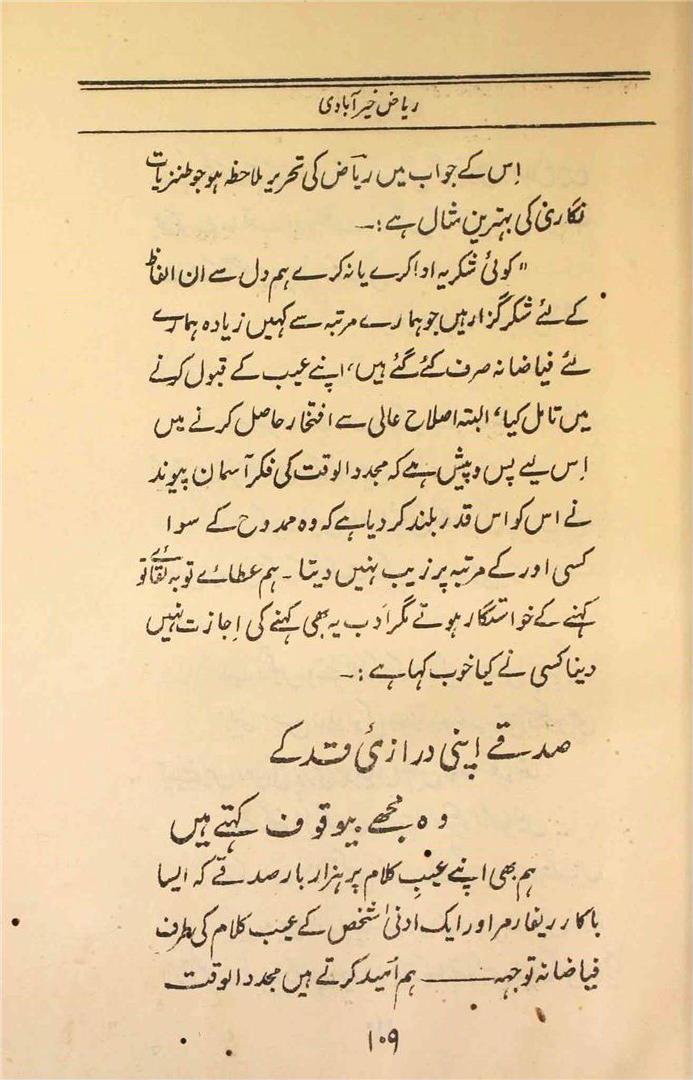 ریاض خیر آبادی
اِس کے جواب میں ریاؔض کی تحریر ملاحظہ ہو جو طنزیات
نگاری کی بہترین مثال ہے :۔
" کوئی شکریہ ادا کرے یا نہ کرے ہم دل سے ان الفاظ
کے لئے شکر گزار ہیں جو ہمارے مرتبہ سے کہیں زیادہ ہمارے
لئے فیاضانہ صرف کئے گئے ہیں، اپنے عیب کے قبول کرنے
میں تامل کیا، البتہ اصلاح عالی سے افتخار حاصل کرنے میں
اِس لیے پس و پیش ہے کہ مجدد الوقت کی فکر آسمان پیوند
نے اس کو اس قدر بلند کر دیا ہے کہ وہ ممدوح کے سوا
کسی اور کے مرتبہ پر زیب نہیں دیتا ۔ ہم عطائے تو بہ لقائے تو
کہنے کے خواستگار ہوتے مگر اَدب یہ بھی کہنے کی اِجازت نہیں
دیتا کسی نے کیا خوب کہا ہے :۔
صدقے اپنی درازیٔ قد کے
وہ مجھے بیوقوف کہتے ہیں
ہم بھی اپنے عیبِ کلام پر ہزار بار صدقے کہ ایسا
باکار ریفارمر اور ایک ادنیٰ شخص کے عیب کلام کی طرف
فیاضانہ توجہہ ــــــ ہم اُمید کرتے ہیں مجدد الوقت
۱۰۹